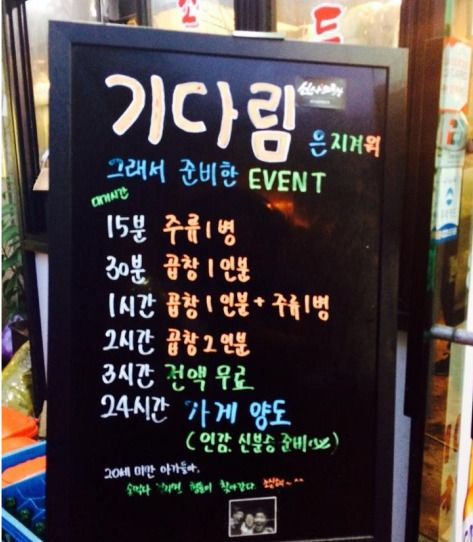 기다림
은 지겨워
그래서 준비한 EVENT
대기시간
15분 주류 1병
30분 곱창 1인분
1시간 곱창 1인분 + 주류 1병
2시간 곱창 2인분
3시간 전액 무료
24시간 가게 양도
(인감, 신분증 준비)
20세 미만 아가들아,
술먹다 형들이 찾아간다. ~^^